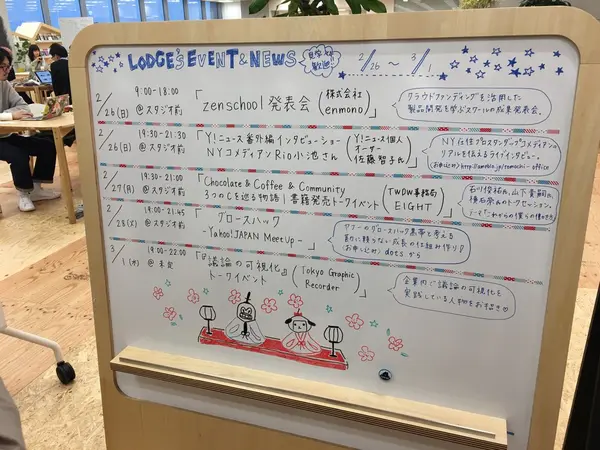 LODGE'S EVENT & NEWS 見学大歓迎! 2/26 ~ 3/1
2/26(日) 9:00-18:00 @スタジオ前 「zenschool 発表会 (株式会社enmono)」
クラウドファンディングを活用した
製品開発を学ぶスクールの成果発表会。
2/26(日) 19:30-21:30 @スタジオ前 「Y!ニュース番外編インタビューショー
NYコメディアンRio小池さん (Y!ニュース個人オーサー佐藤智子氏)」
NY在住プロスタンダップコメディアンの
リアルを伝えるライブインタビュー。
2/27(月) 19:30-21:00 @スタジオ前 「Chocolate & Coffee & Community
3つのCを巡る物語|書籍発売トークイベント (TWDW事務局 EIGHT)」
2/28(火) 19:00-21:45 @スタジオ前 「グロースハック
-Yahoo!JAPAN MeetUp-」
ヤフーのグロースハック黒帯と考える
割りに頼らない成長の仕組み作り♪
(お申し込み) dots から
3/1(水) 19:00-22:00 @未定 「『議論の可視化』
トークイベント (Tokyo Graphic Recorder)」
企業内で議論の可視化を
実践している人物をお招き♡